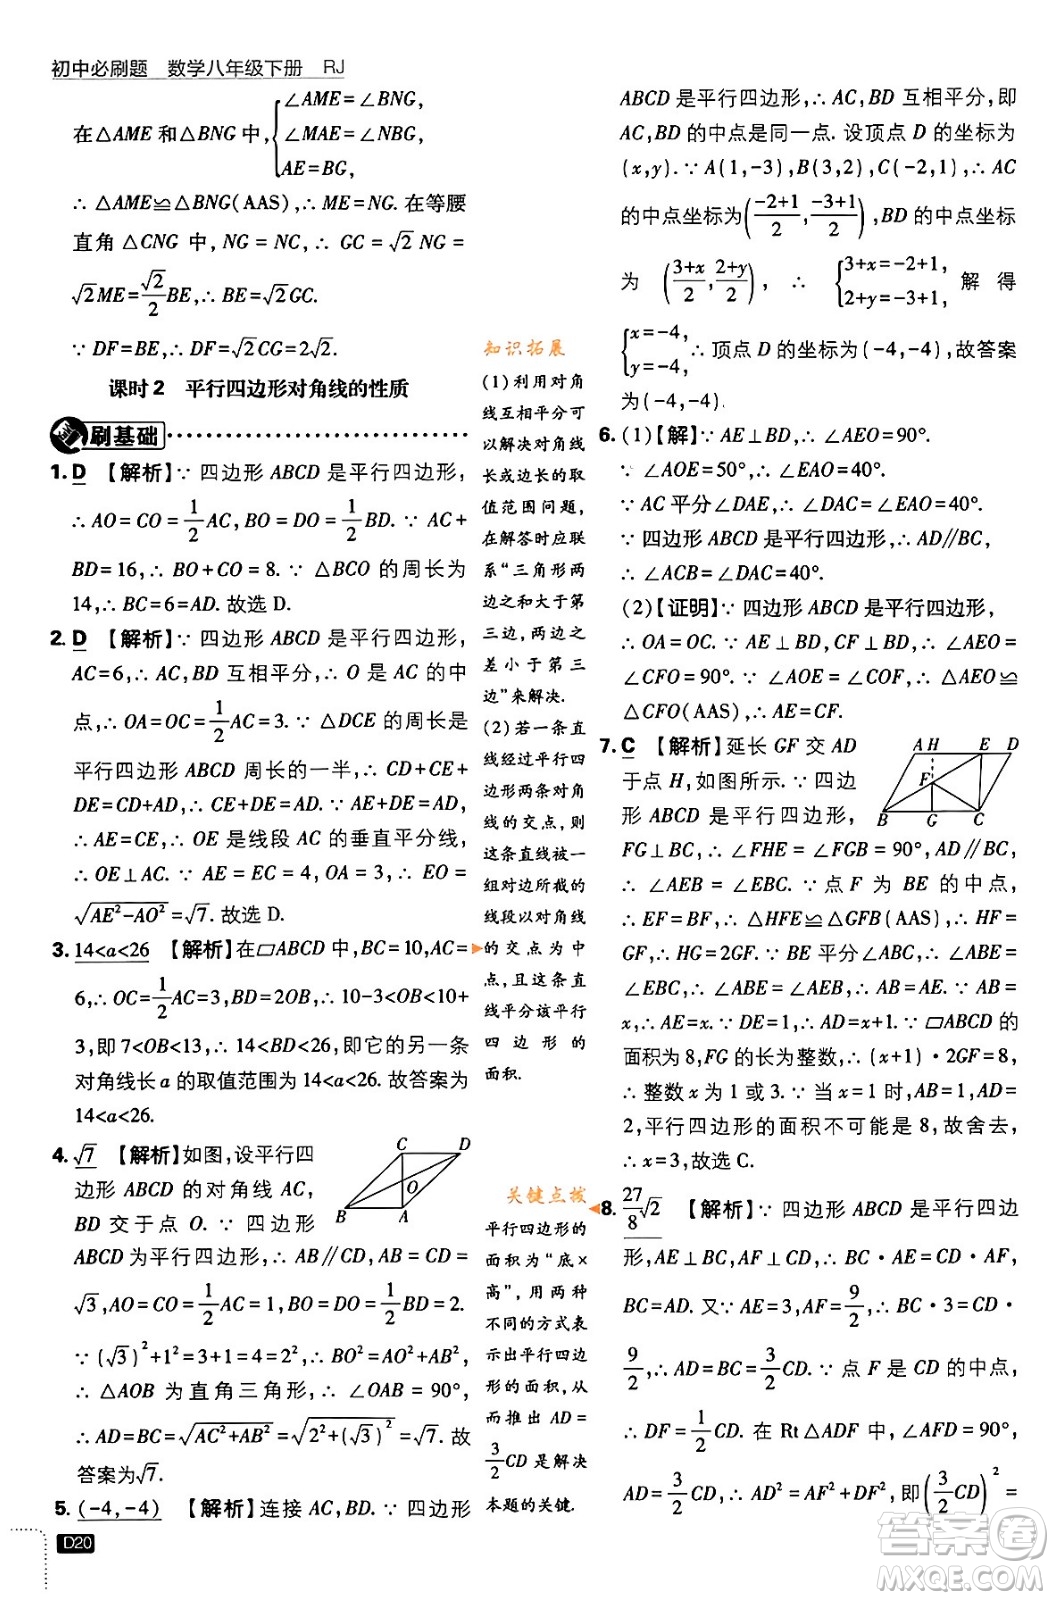 初中必刷题 数学八年级下册 RJ
在△AME 和△BNG 中,{∠AME=∠BNG,
∠MAE=∠NBG,
AE=BG,
∴ △AME≌△BNG(AAS),∴ ME=NG. 在等腰
直角 △CNG 中, NG = NC, ∴ GC = √2 NG =
√2ME=√2/2BE,∴ BE=√2GC.
∵ DF=BE,∴ DF=√2CG=2√2.
课时2 平行四边形对角线的性质
刷基础
1. D 【解析】∵ 四边形 ABCD 是平行四边形,
∴ AO=CO=1/2AC,BO=DO=1/2BD. ∵ AC+
BD=16,∴ BO+CO=8. ∵ △BCO 的周长为
14,∴ BC=6=AD. 故选 D.
2. D 【解析】∵ 四边形 ABCD 是平行四边形,
AC=6,∴ AC,BD 互相平分,∴ O 是 AC 的中
点,∴ OA=OC=1/2AC=3. ∵ △DCE 的周长是
平行四边形 ABCD 周长的一半,∴ CD+CE+
DE=CD+AD,∴ CE+DE=AD. ∵ AE+DE=AD,
∴ AE=CE,∴ OE 是线段 AC 的垂直平分线,
∴ OE⊥AC. ∵ AE = EC = 4, OA = 3, ∴ EO =
√(AE²-AO²)=√7. 故选 D.
3. 14<a<26 【解析】在▱ABCD 中,BC=10,AC=
6,∴ OC=1/2AC=3,BD=2OB,∴ 10-3<OB<10+
3,即 7<OB<13,∴ 14<2OB<26,即它的另一条
对角线长 a 的取值范围为 14<a<26. 故答案为
14<a<26.
4. √7 【解析】如图,设平行四
边形 ABCD 的对角线 AC,
BD 交于点 O. ∵ 四边形
ABCD 为平行四边形,∴ AB∥CD,AB=CD=
√3,AO=CO=1/2AC=1,BO=DO=1/2BD=2.
∵ (√3)²+1²=3+1=4=2²,∴ BO²=AO²+AB²,
∴ △AOB 为直角三角形,∴ ∠OAB = 90°,
∴ AD=BC=√(AC²+AB²)=√(2²+(√3)²)=√7. 故
答案为√7.
5. (-4,-4) 【解析】连接 AC,BD. ∵ 四边形
C D O B A
D20
知识拓展
(1)利用对角
线互相平分可
以解决对角线
长或边长的取
值范围问题,
在解答时应联
系“三角形两
边之和大于第
三边,两边之
差小于第三
边”来解决.
(2)若一条直
线经过平行四
边形两条对角
线的交点,则
这条直线被一
组对边所截的
线段以对角线
的交点为中
点,且这条直
线平分该平行
四边形的
面积.
关键点拨
平行四边形的
面积为“底×
高”,用两种
不同的方式表
示出平行四边
形的面积,从
而推出 AD=
3/2CD 是解决
本题的关键.
ABCD 是平行四边形,∴ AC,BD 互相平分,即
AC,BD 的中点是同一点. 设顶点 D 的坐标为
(x,y). ∵ A(1,-3),B(3,2),C(-2,1),∴ AC
的中点坐标为((-2+1)/2,(-3+1)/2),BD 的中点坐标
为 ((3+x)/2,(2+y)/2), ∴ {3+x=-2+1, 2+y=-3+1, 解得
{x=-4, y=-4, ∴ 顶点 D 的坐标为(-4,-4),故答案
为(-4,-4).
6. (1)【解】∵ AE⊥BD,∴ ∠AEO=90°.
∵ ∠AOE=50°,∴ ∠EAO=40°.
∵ AC 平分∠DAE,∴ ∠DAC=∠EAO=40°.
∵ 四边形 ABCD 是平行四边形,∴ AD∥BC,
∴ ∠ACB=∠DAC=40°.
(2)【证明】∵ 四边形 ABCD 是平行四边形,
∴ OA=OC. ∵ AE⊥BD,CF⊥BD,∴ ∠AEO=
∠CFO=90°. ∵ ∠AOE=∠COF,∴ △AEO≌
△CFO(AAS),∴ AE=CF.
7. C 【解析】延长 GF 交 AD
于点 H,如图所示. ∵ 四边
形 ABCD 是平行四边形,
FG⊥BC,∴ ∠FHE=∠FGB=90°,AD∥BC,
∴ ∠AEB = ∠EBC. ∵ 点 F 为 BE 的中点,
∴ EF=BF,∴ △HFE≌△GFB(AAS),∴ HF=
GF. ∵ BE 平分∠ABC,∴ ∠ABE =
∠EBC,∴ ∠ABE=∠AEB,∴ AE=AB. ∵ AB=
x,∴ AE=x. ∵ DE=1,∴ AD=x+1. ∵ ▱ABCD 的
面积为 8,FG 的长为整数,∴ (x+1)·2GF=8,
∴ 整数 x 为 1 或 3. ∵ 当 x=1 时,AB=1,AD=
2,平行四边形的面积不可能是 8,故舍去,
∴ x=3,故选 C.
A H E D F B G C
8. 27/8√2 【解析】∵ 四边形 ABCD 是平行四边
形,AE⊥BC,AF⊥CD,∴ BC·AE=CD·AF,
BC=AD. 又∵ AE=3,AF=9/2,∴ BC·3=CD·
9/2,∴ AD=BC=3/2CD. ∵ 点 F 是 CD 的中点,
∴ DF=1/2CD. 在 Rt△ADF 中,∠AFD=90°,
AD=3/2CD,∴ AD²=AF²+DF²,即(3/2CD)²=
答案圈
MXQE.COM